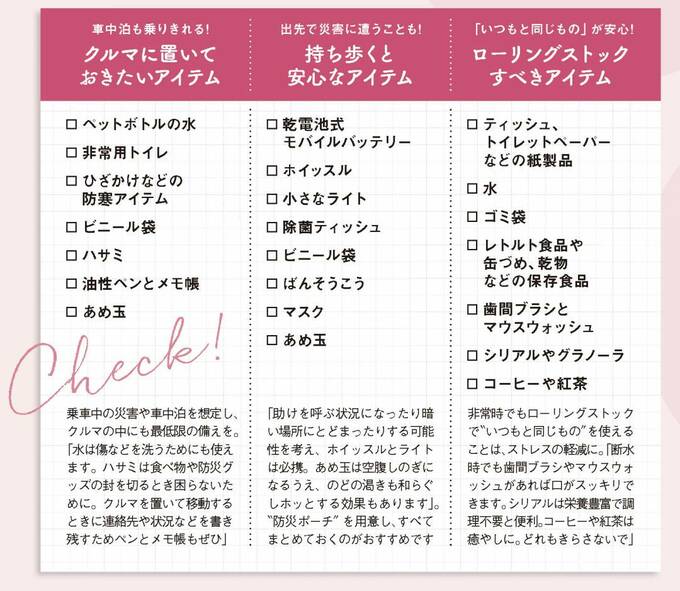 車中泊も乗りきれる!
クルマに置いて
おきたいアイテム
□ ペットボトルの水
□ 非常用トイレ
□ ひざかけなどの
防寒アイテム
□ ビニール袋
□ ハサミ
□ 油性ペンとメモ帳
□ あめ玉
Check!
乗車中の災害や車中泊を想定し、
クルマの中にも最低限の備えを。
「水は傷などを洗うためにも使え
ます。ハサミは食べ物や防災グ
ッズの封を切るとき困らないた
めに。クルマを置いて移動する
ときに連絡先や状況などを書き
残すためペンとメモ帳もぜひ」
出先で災害に遭うことも!
持ち歩くと
安心なアイテム
□ 乾電池式
モバイルバッテリー
□ ホイッスル
□ 小さなライト
□ 除菌ティッシュ
□ ビニール袋
□ ばんそうこう
□ マスク
□ あめ玉
「助けを呼ぶ状況になったり暗
い場所にとどまったりする可能
性を考え、ホイッスルとライト
は必携。あめ玉は空腹しのぎに
なるうえ、のどの渇きも和らぐ
しホッとする効果もあります」。
“防災ポーチ”を用意し、すべて
まとめておくのがおすすめです
「いつもと同じもの」が安心!
ローリングストック
すべきアイテム
□ ティッシュ、
トイレットペーパー
などの紙製品
□ 水
□ ゴミ袋
□ レトルト食品や
缶づめ、乾物
などの保存食品
□ 歯間ブラシと
マウスウォッシュ
□ シリアルやグラノーラ
□ コーヒーや紅茶
非常時でもローリングストック
で“いつもと同じもの”を使える
ことは、ストレスの軽減に。「断水
時でも歯間ブラシやマウスウォ
ッシュがあれば口がスッキリで
きます。シリアルは栄養豊富で調
理不要と便利。コーヒーや紅茶は
癒やしに。どれもきらさないで」